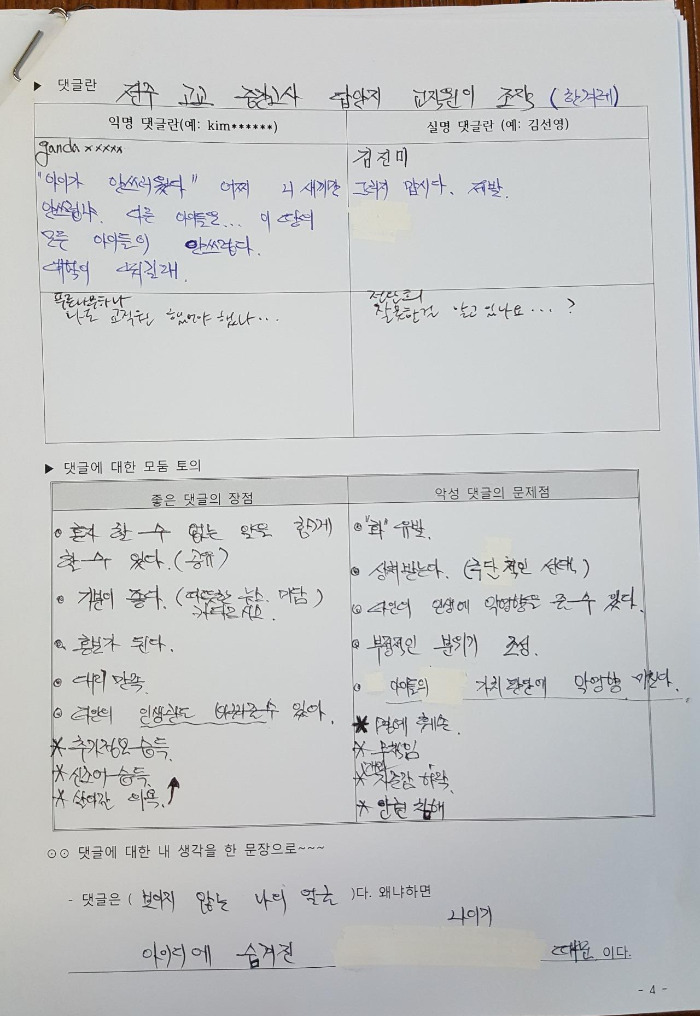 ▶ 댓글란 전주 고교 중간고사 답안지 교직원이 조작 (한겨레)
익명 댓글란(예: kim******)
실명 댓글란 (예: 김선영)
ganda×××××
"아이가 안쓰러웠다" 어찌 니 새끼만
안쓰럽냐. 다른 아이들은... 이 땅의
모든 아이들이 안쓰럽다.
김진미
그러지 맙시다. 제발.
푸른나무하나
나도 교직원 했었야 했나...
잘못한걸 알고 있나요...?
▶ 댓글에 대한 모둠 토의
좋은 댓글의 장점
악성 댓글의 문제점
혼자 할 수 없는 일을 함께
할 수 있다. (공유)
기분이 좋다. (따뜻한 뉴스. 미담)
카타르시스
홍보가 된다.
대리 만족
타인의 인생샷도 수 있어.
* 추가정보 습득.
* 신조어 습득.
* 살아갈 의욕. ↑
"화" 유발.
상처받는다. (극단적인 선택)
타인의 인생에 악영향을 준 수 있다.
부정적인 분위기 조성.
아이들의 가치판단에 악영향 미친다.
* 명예 훼손.
* 무책임
* 자존감 하락.
* 인권 침해
⊙⊙ 댓글에 대한 내 생각을 한 문장으로~~~
- 댓글은 ( 보이지 않는 나의 얼굴 )다. 왜냐하면
나이기
아이디에 숨겨진 때문 이다.
- 4 -